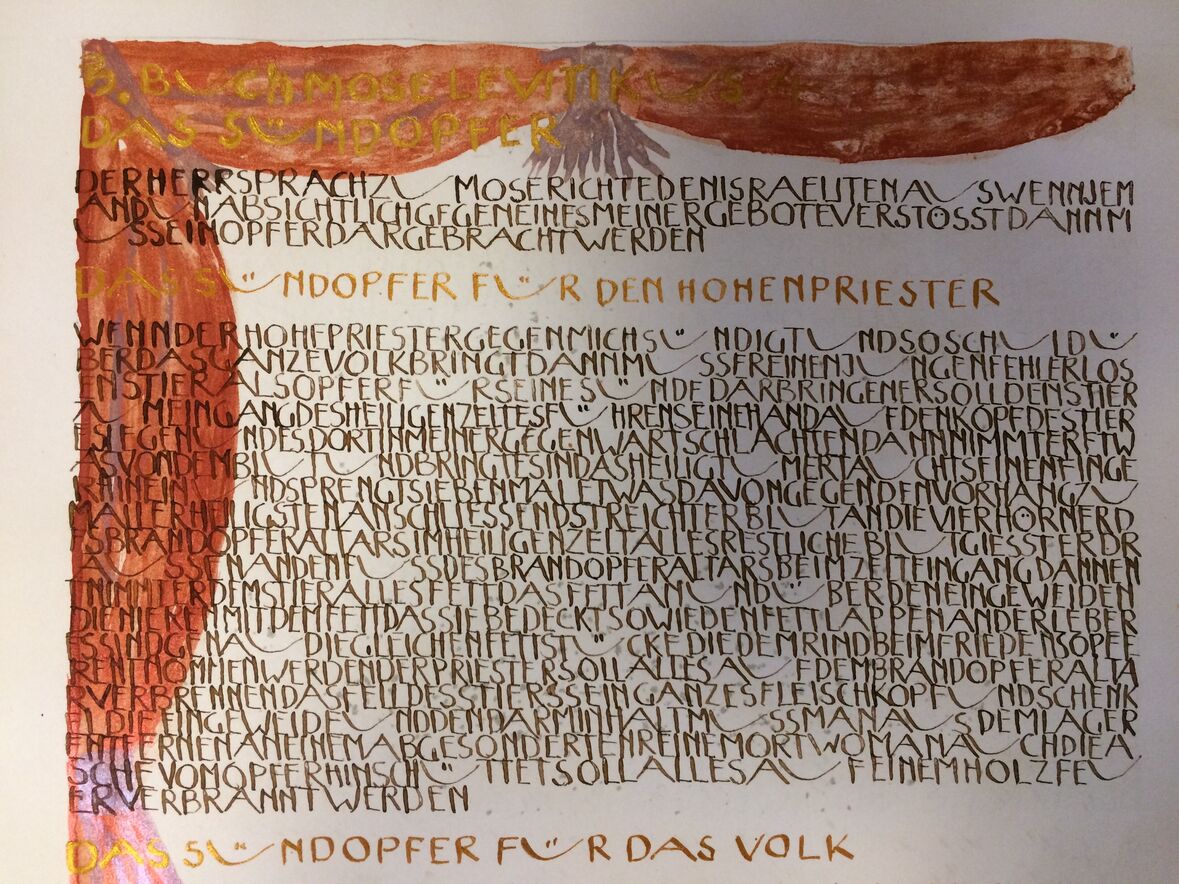 3. BUCH MOSE LEVITIKUS 4
DAS SÜNDOPFER
DERHERRSPRACHZU MOSERICHTEDENISRAELITENAU SWENNJEM
ANDUNABSICHTLICHGEGENEINESMEINERGEBOTEVERSTÖSSTDANNM
USSEINOPFERDARGEBRACHTWERDEN
DAS SÜNDOPFER FÜR DEN HOHENPRIESTER
WENNDERHOHEPRIESTERGEGENMICHSÜNDIGTUNDSOSCHULDÜ
BERDASGANZEVOLKBRINGTDANNMUSSEREINENJUNGENFEHLERLOS
ENSTIERALSOPFERFÜRSEINESÜNDEDARBRINGENERSOLLDENSTIER
ZUMEINGANGDESHEILIGENZELTESFÜHRENSEINEHANDAUFDENKOPFDESTIER
ESLEGENUNDESDORTINMEINERGEGENWARTSCHLACHTENDANNNIMMTERETW
ASVONDEMBLUTUNDBRINGTESINDASHEILIGTUMERTAUCHTSEINENFINGE
RHINEINUNDSPRENGTSIEBENMALETWASDAVONGEGENDENVORHANGZU
MALLERHEILIGSTENANSCHLIESSENDSTREICHTERBLUTANDIEVIERHÖRNERD
ESBRANDOPFERALTARSIMHEILIGENZELTALLESRESTLICHEBLUTGIESSTERDR
AUSSENANDENFUSSDESBRANDOPFERALTARSBEIMZELTEINGANGDANNEN
TNIMMTERDEMSTIERALLESFETTDASFETTANUNDÜBERDENEINGEWEIDEN
DIENIERENMITDEMFETTDASSIEBEDECKTSOWIEDENFETTLAPPENANDERLEBER
ESSINDGENAUDIEGLEICHENFETTSTÜCKEDIEDEMRINDBEIMFRIEDENSOPFE
RENTNOMMENWERDENDERPRIESTERSOLLALLESAUFDEMBRANDOPFERALTA
RVERBRENNENDASFELLDESSTIERSSEINGANZESFLEISCHKOPFUNDSCHENK
ELDIEEINGEWEIDEUNDDENDARMINHALTMUSSMANAUSDEMLAGER
ENTFERNENANEINEMABGESONDERTENREINEMORTWOMANAUCHDIEA
SCHEVOMOPFERHINSCHÜTTETSOLLALLESAUFEINEMHOLZFEU
ERVERBRANNTWERDEN
DAS SÜNDOPFER FÜR DAS VOLK